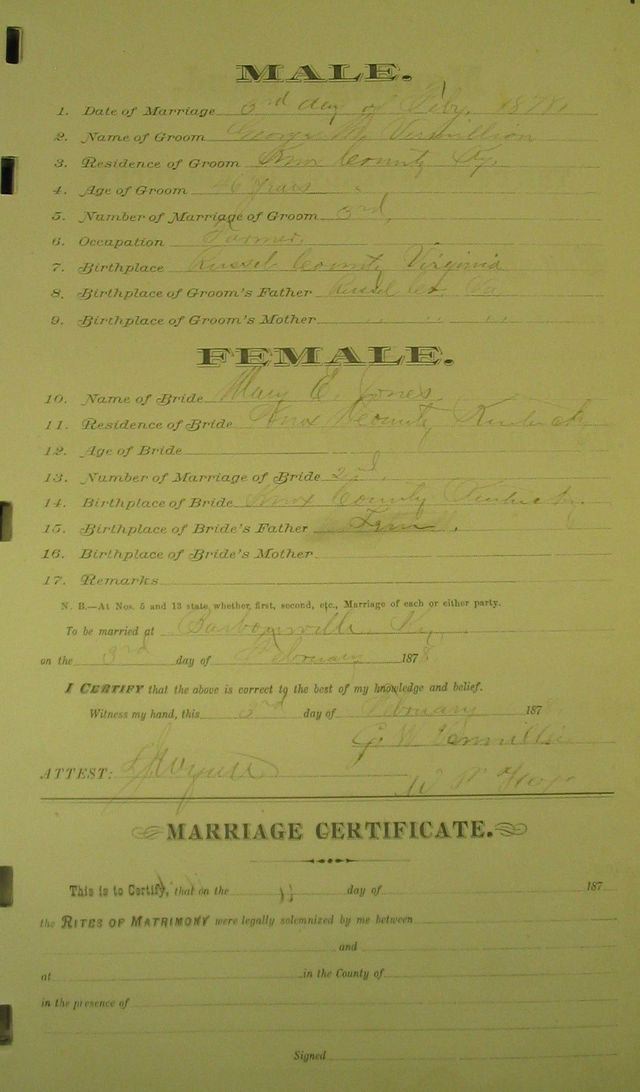 MALE.
1. Date of Marriage 3rd day of Feby. 1878
2. Name of Groom George W Vermillion
3. Residence of Groom Knox County Ky.
4. Age of Groom 46 years
5. Number of Marriage of Groom 3rd,
6. Occupation Farmer
7. Birthplace Russel County Virginia
8. Birthplace of Groom's Father Russel Co. Va
9. Birthplace of Groom's Mother " " "
FEMALE.
10. Name of Bride Mary E. Jones
11. Residence of Bride Knox County, Kentucky
12. Age of Bride
13. Number of Marriage of Bride 2nd.
14. Birthplace of Bride Knox County Kentucky.
15. Birthplace of Bride's Father Tenn.
16. Birthplace of Bride's Mother
17. Remarks
N. B.—At Nos. 5 and 13 state, whether, first, second, etc., Marriage of each or either party.
To be married at Barbourville Ky,
on the 3rd day of February 1878.
I CERTIFY that the above is correct to the best of my knowledge and belief.
Witness my hand, this 3rd day of February 1878.
G. W. Vermillion
ATTEST:
MARRIAGE CERTIFICATE.
This is to Certify, that on the day of 187
the RITES OF MATRIMONY were legally solemnized by me between
and
at in the County of
in the presence of
Signed